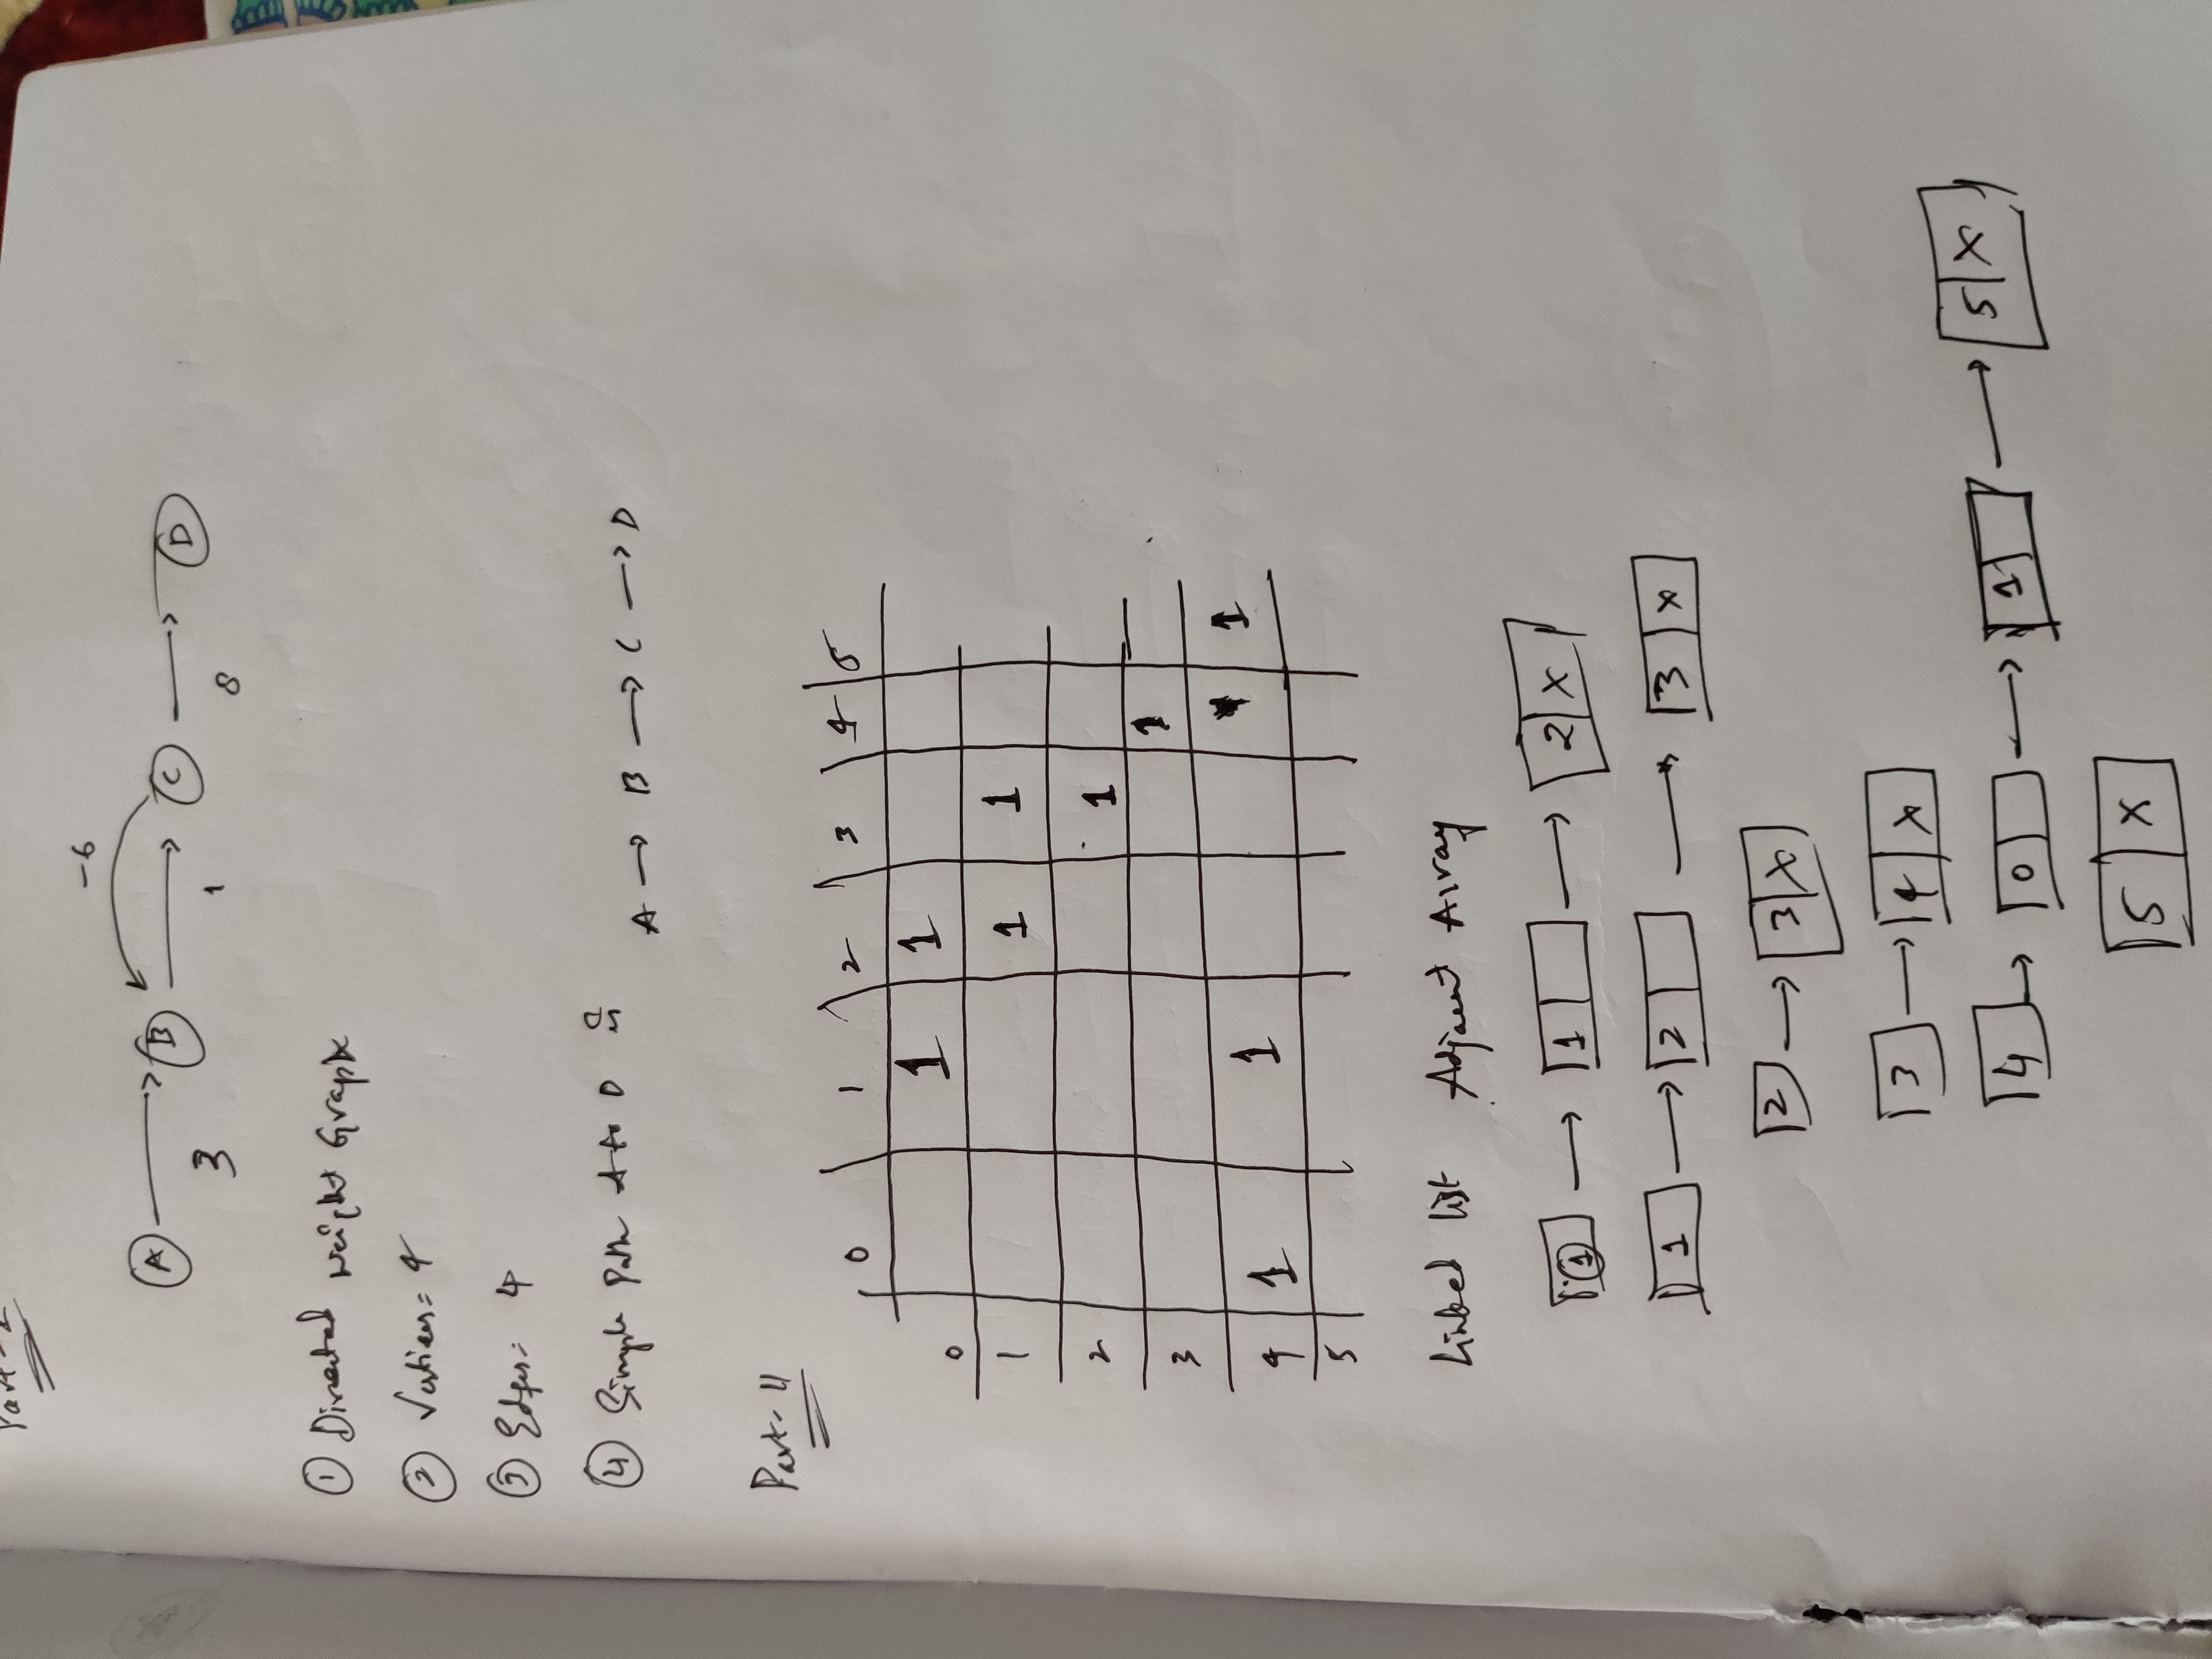 Part-I
-6
A B C D
3 1 8
① Directed weight Graph
② Vertices= 4
③ Edges= 4
④ Simple Path A to D is
A → B → C → D
Part-II
0 1 2 3 4 5
0 1 1
1 1 1
2 1
3 1
4 1 1 1
5
Linked list Adjacent Array
1 → 1 → 2 X
1 → 2 → 3 X
2 → 3 X
3 → 4 X
4 → 0 → 1 → 5 X
5 X